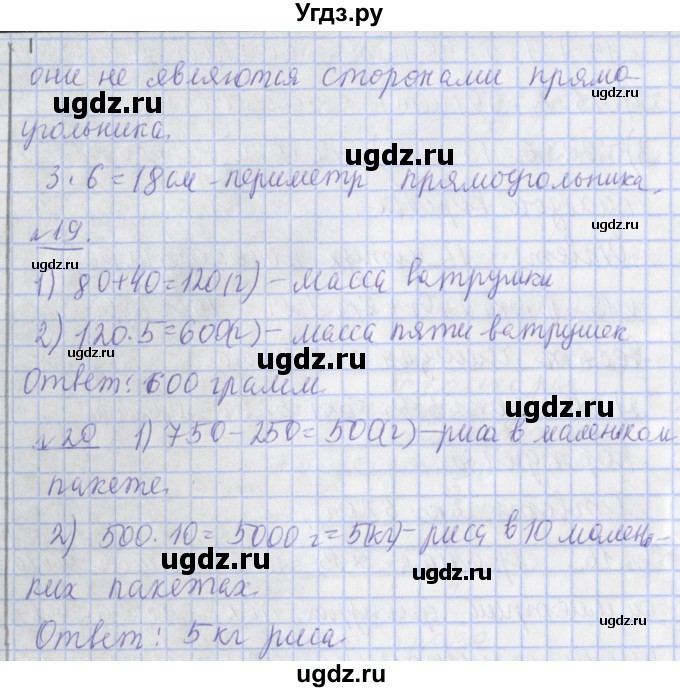 Угдз.ру
они не являются сторонами прямо-
угольника.
3·6=18см - периметр прямоугольника.
№19.
1) 80+40=120(г) - масса ватрушки
2) 120·5=600(г) - масса пяти ватрушек
Ответ: 600 грамм.
№20 1) 750-250=500(г) - риса в маленьком
пакете.
2) 500·10=5000 г=5(кг) - риса в 10 малень-
ких пакетах.
Ответ: 5 кг риса.
ugdz.ru
ugdz.ru
ugdz.ru
ugdz.ru
ugdz.ru
ugdz.ru
ugdz.ru
ugdz.ru
ugdz.ru
ugdz.ru
ugdz.ru
ugdz.ru
ugdz.ru
ugdz.ru